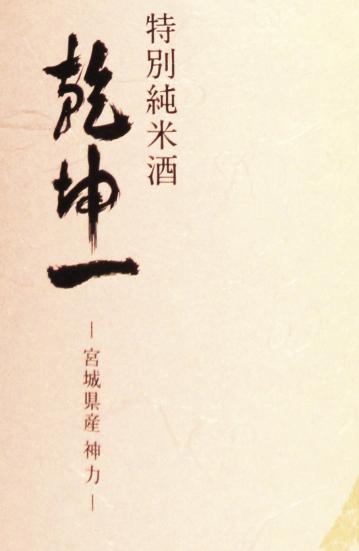 特別純米酒
乾坤一
― 宮城県産 神力 ―